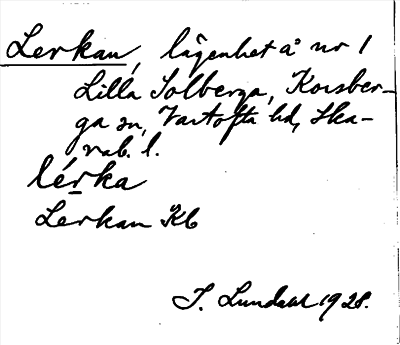 Lerkan, lägenhet å nr 1
Lilla Solberga, Korsber-
ga sn, Vartofta hd, Ska-
rab. l.
lérka
Lerkan Kb
S. Lundahl 1928.